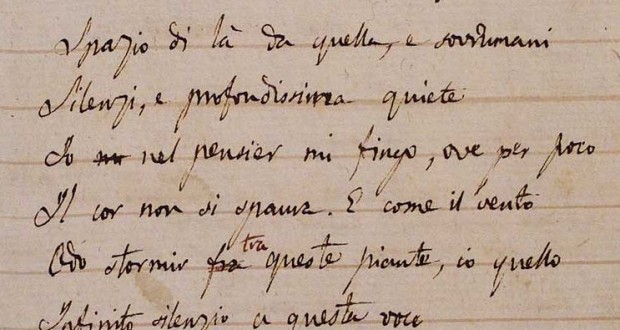 Spazio di là da quella, e sovrumani
Silenzi, e profondissima quiete
Io nel pensier mi fingo, ove per poco
Il cor non si spaura. E come il vento
Odo stormir fra tra queste piante, io quello
Infinito silenzio a questa voce